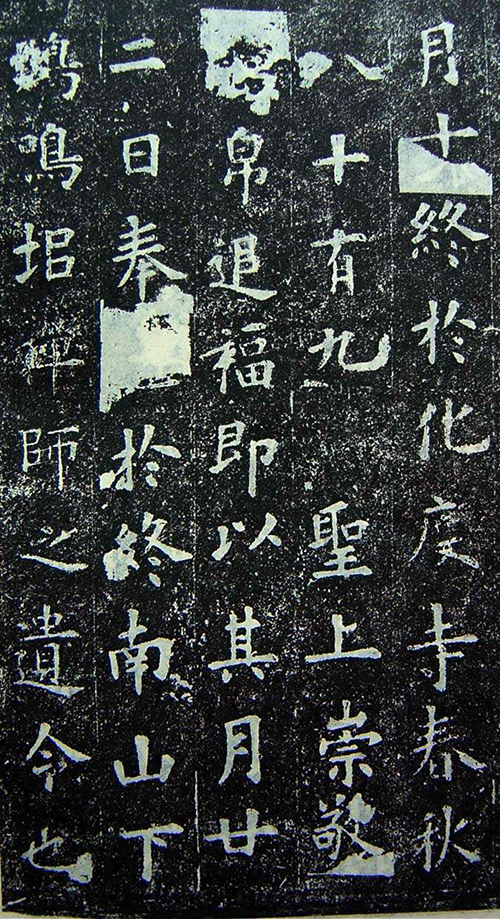 月十終於化度寺春秋
八十有九聖上崇敬
帛退福即以其月廿
二日奉於終南山下
鳴鳴堆禅師之遺令也